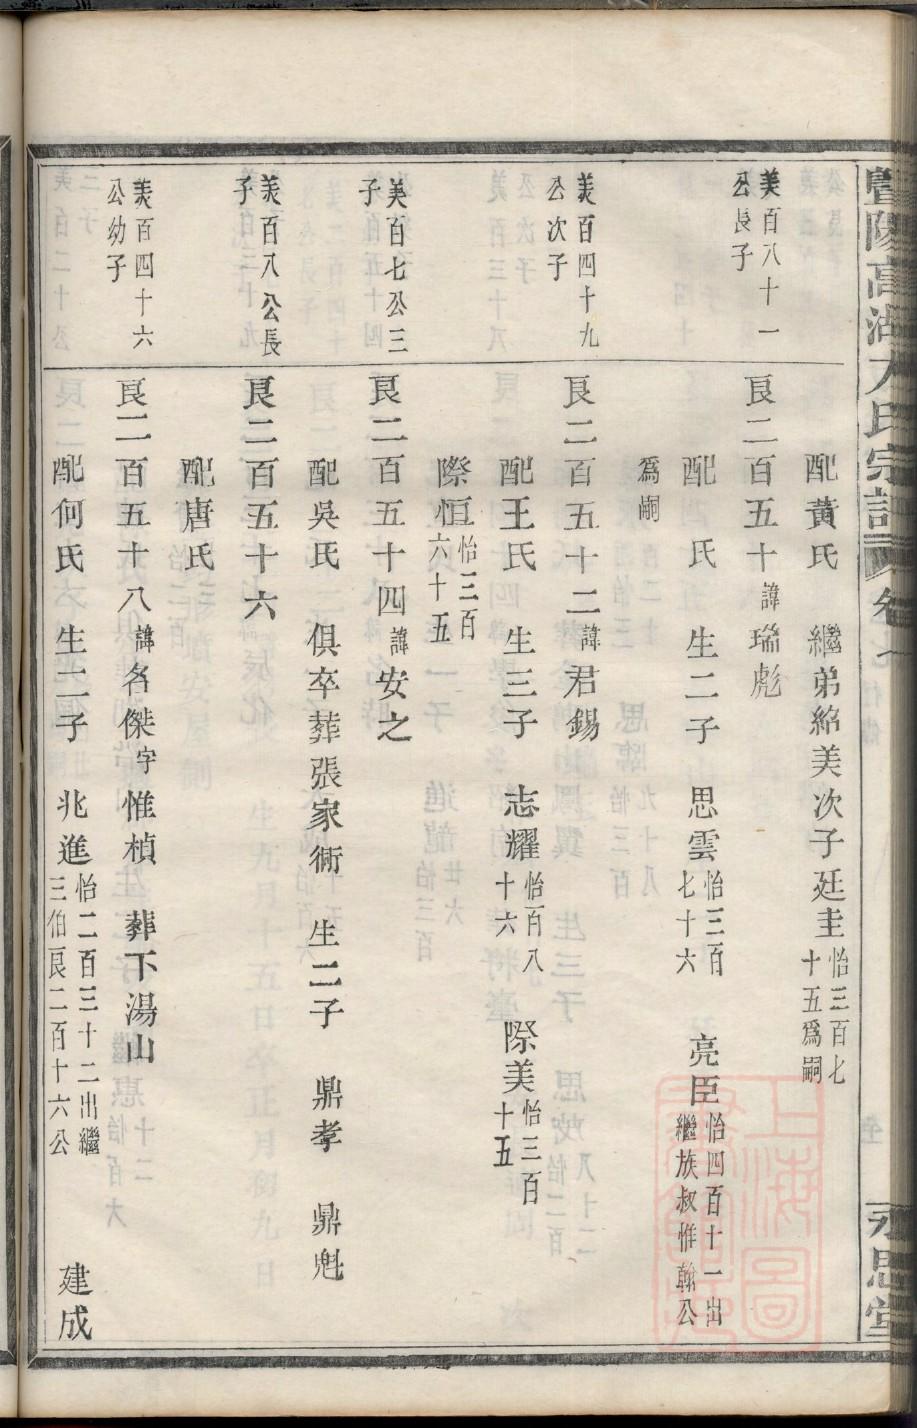 暨陽高湖 氏宗譜 卷七 永思堂
配黃氏 繼弟紹美次子廷圭怡三百七十五爲嗣
美百八十一公長子
良二百五十諱瑞彪
配 氏 生二子 思雲怡三百七十六 亮臣怡四百十一出繼族叔惟翰公
爲嗣
美百四十九公次子
良二百五十二諱君錫
配王氏 生三子 志耀怡百八十六 際美怡三百十五
際恒怡三百六十五
美百七公三子
良二百五十四諱安之
配吳氏 俱卒葬張家衖 生二子 鼎孝 鼎魁
美百八公長子
良二百五十六
配唐氏
美百四十六公幼子
良二百五十八諱名傑字惟楨 葬下湯山
配何氏 生二子 兆進怡二百三十二出繼三伯良二百十六公 建成